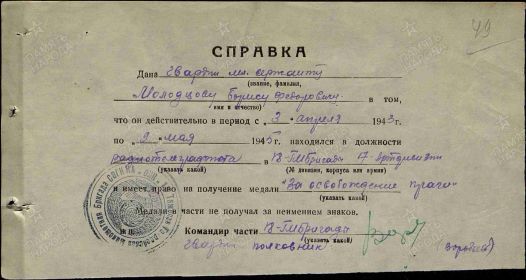 49
СПРАВКА
Дана гвардии мл. сержанту
(звание, фамилия,
Молодцову Борису Федоровичу
имя и отчество)
в том,
что он действительно в период с 3 апреля 1945г.
по 9 мая 1945г. находился в должности
радиотелеграфиста в 12-ГМБригады 7-артдивизии
(указать какой) (№ дивизии, корпуса или армии)
и имеет право на получение медали "За освобождение Праги"
(указать какой)
Медали в части не получал за неимением знаков.
Командир части 12-ГМБригады
(указать какой)
гвардии полковник